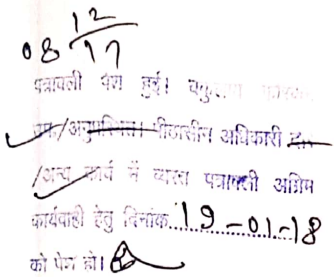 08 12/17
पत्रावली पेश हुई। वकुलाय
उप./अनुपस्थित। पीठासीन अधिकारी
/अन्य कार्य में व्यस्त पत्रावली अग्रिम
कार्यवाही हेतु दिनांक..19-01-18
को पेश हो।